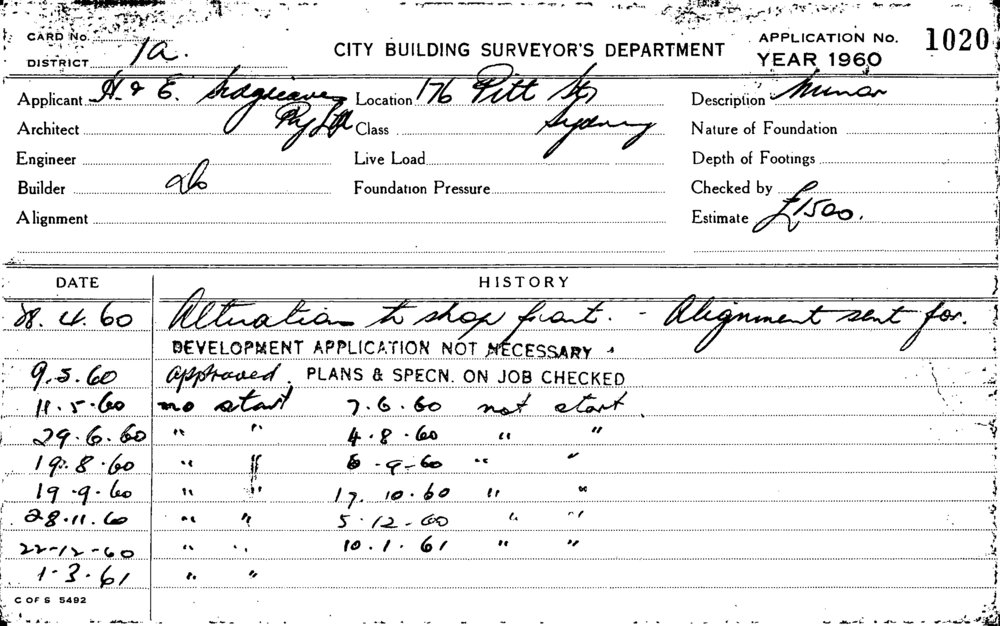 CARD No.
DISTRICT 1a.
CITY BUILDING SURVEYOR'S DEPARTMENT
APPLICATION No. 1020
YEAR 1960
Applicant H. & E. Sidgreaves Pty Ltd
Location 176 Pitt St, Sydney
Description Minor
Architect
Class
Nature of Foundation
Engineer
Live Load
Depth of Footings
Builder do
Foundation Pressure
Checked by
Alignment
Estimate £1500.
DATE HISTORY
28.4.60 Alteration to shop front. - Alignment sent for.
DEVELOPMENT APPLICATION NOT NECESSARY
9.5.60 approved. PLANS & SPECN. ON JOB CHECKED
11.5.60 no start 7.6.60 not start.
29.6.60 " " 4.8.60 " "
19.8.60 " " 6-9-60 " "
19.9.60 " " 17.10.60 " "
28.11.60 " " 5.12.60 " "
22-12-60 " " 10.1.61 " "
1.3.61 " "
C OF S 5492